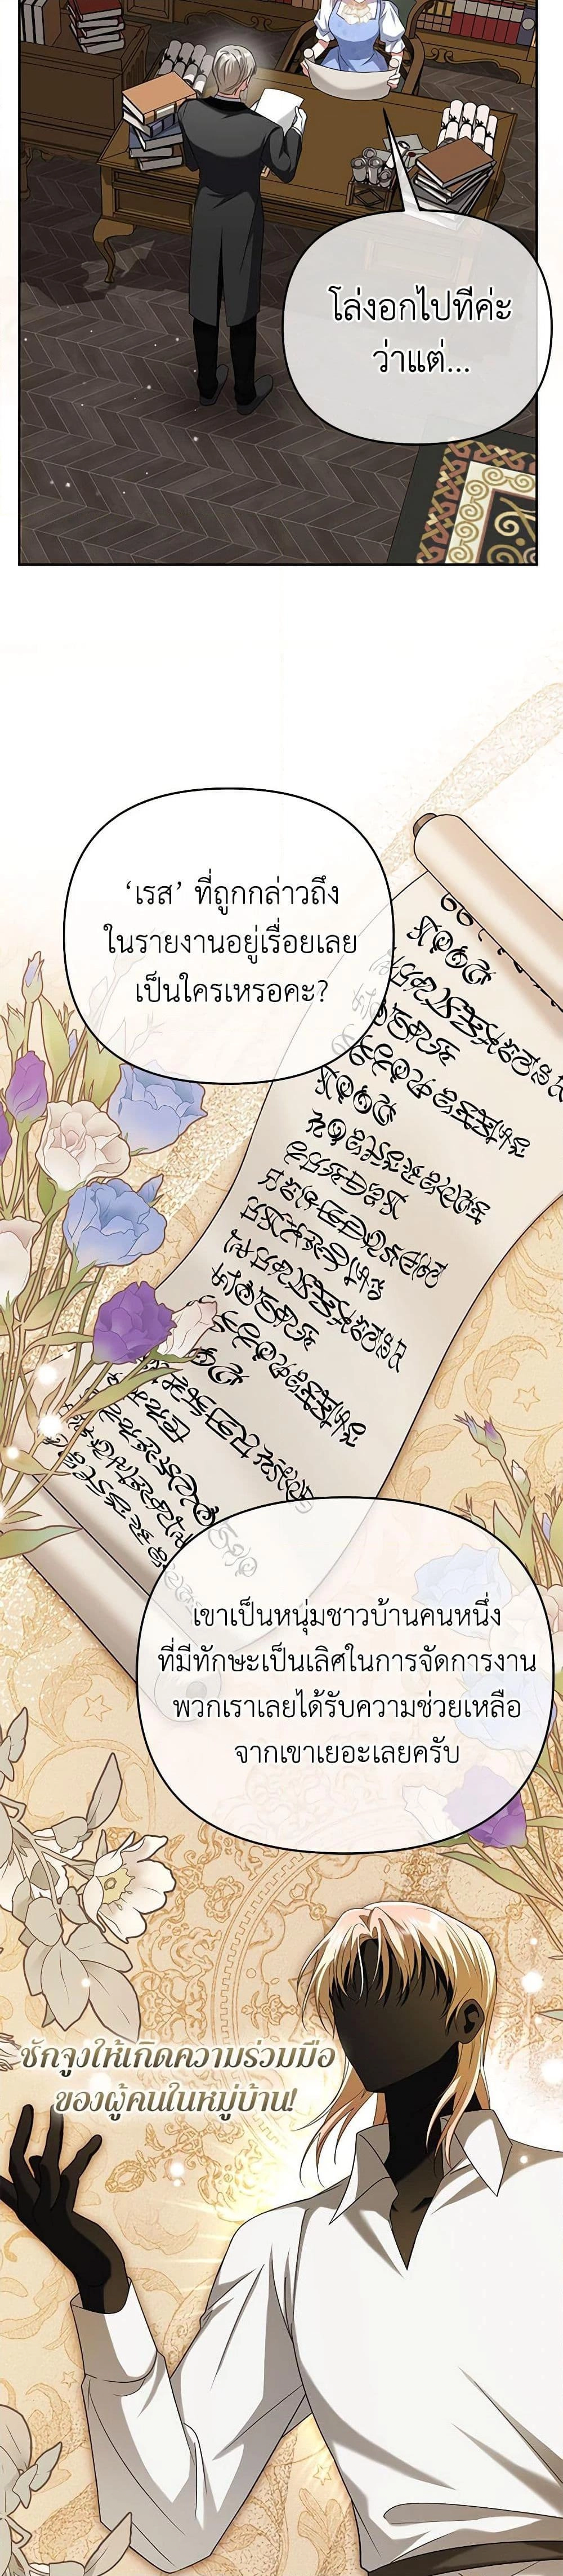 โล่งอกไปทีค่ะ
ว่าแต่...
‘เรส’ ที่ถูกกล่าวถึง
ในรายงานอยู่เรื่อยเลย
เป็นใครเหรอคะ?
เขาเป็นหนุ่มชาวบ้านคนหนึ่ง
ที่มีทักษะเป็นเลิศในการจัดการงาน
พวกเราเลยได้รับความช่วยเหลือ
จากเขาเยอะเลยครับ
ชักจูงให้เกิดความร่วมมือ
ของผู้คนในหมู่บ้าน!